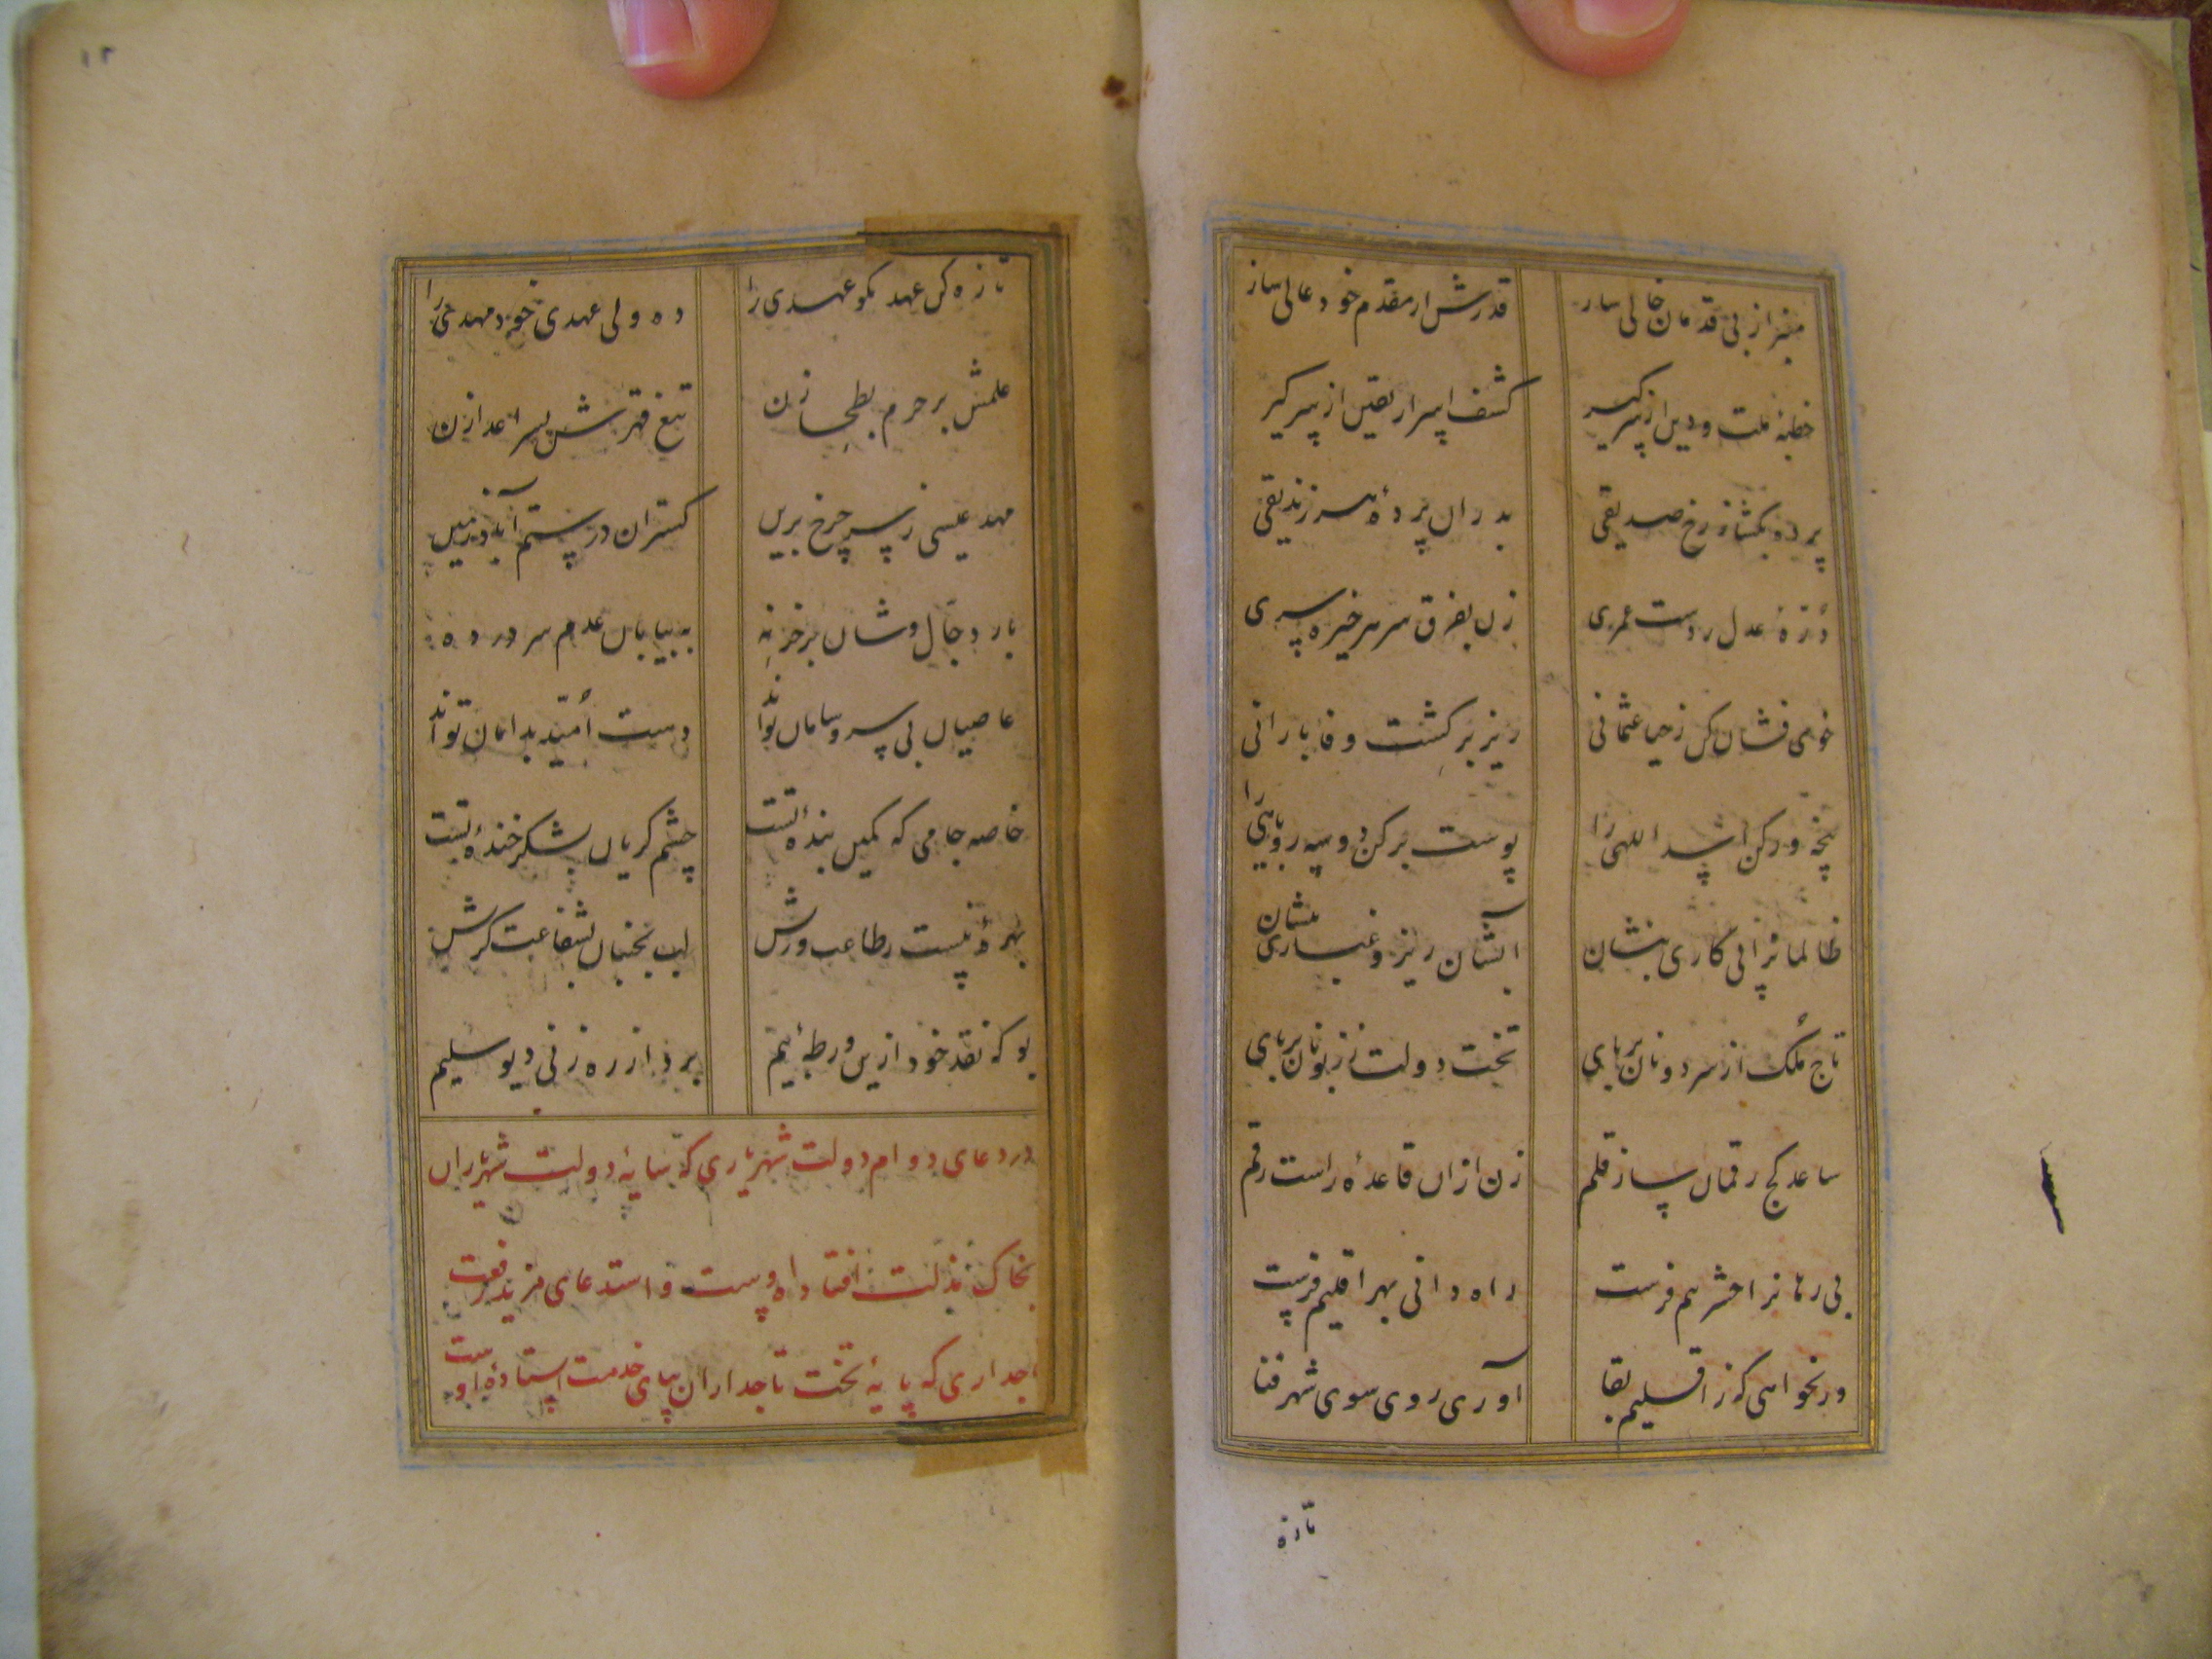 منبر از بی قدمان خالی ساز قدرش از مقدم خود عالی ساز
خطبهٔ ملت و دین از سر گیر کشف اسرار یقین از سر گیر
پرده بگشا ز رخ صدیقی بدران پردهٔ هر زندیقی
درّهٔ عدل ز دست عمری زن بفرق سر هر خیره سری
خوی فشان کن ز حیا عثمانی ریز بر کشت وفا بارانی
پنجه ور کن اسد اللهی را پوست بر کن دو سه روباهی را
ظالمانرا پی کاری بنشان آبشان ریز و غباری بنشان
تاج ملک از سر دونان بربای تخت دولت ز زبونان بربای
ساعد کج رقمان ساز قلم زن ازان قاعدهٔ راست رقم
بی رهانرا حشر بیم فرست راه دانی بهر اقلیم فرست
ور نخواهی که ز اقلیم بقا آوری روی سوی شهر فنا
تازه
۱۲
تازه کن عهد نکو عهدی را ده ولی عهدی خود مهدی را
علمش بر حرم بطحا زن تیغ قهرش بسر اعدا زن
مهد عیسی ز سر چرخ برین گستران در ستم آباد زمین
بار دجال وشان بر خر نه به بیابان عدم سر در ده
عاصیان بی سر و سامان تواند دست امّید بدامان تواند
خاصه جامی که کمین بندهٔ تست چشم گریان بشکر خندهٔ تست
بهره نیست ز طاعت ورزش لب بجنبان بشفاعت گرش
بو که نقد خود ازین ورطهٔ بیم برد از ره زنی دیو سلیم
در دعای دوام دولت شهریاری که سایهٔ دولت شهریاران
بخاک مذلت افتاده اوست و استدعای مزید رفعت
تاجداری که پایهٔ تخت تاجداران بپای خدمت استادهٔ اوست